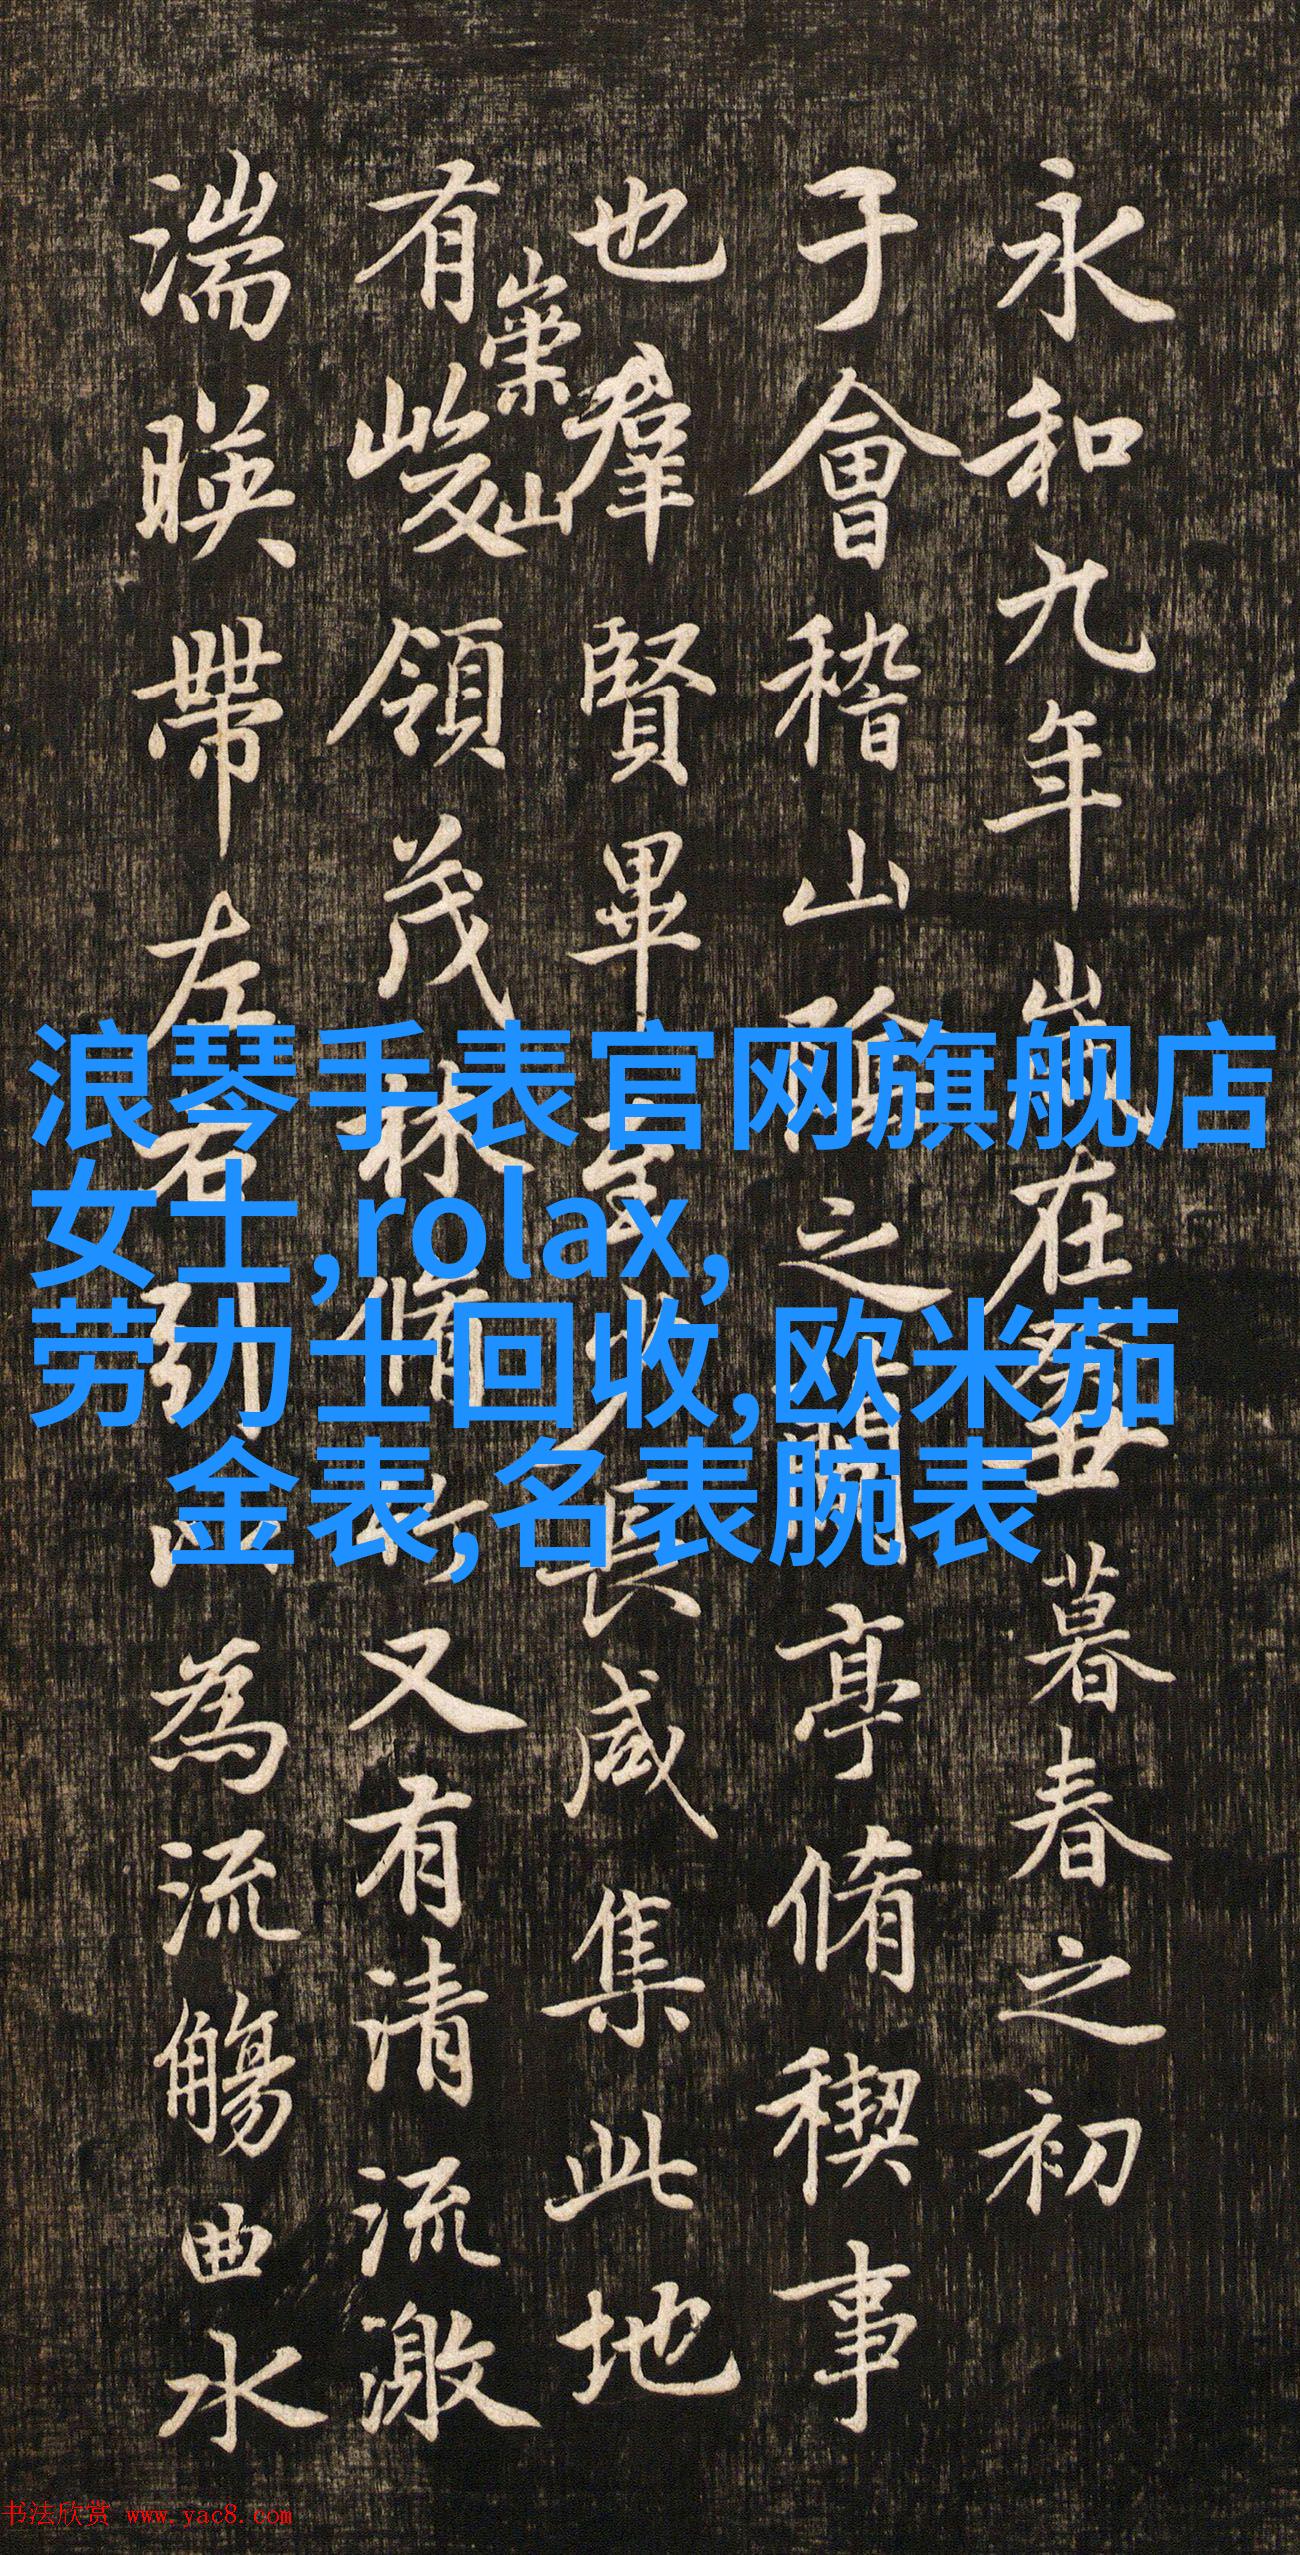 永和九年歲在癸丑暮春之初
于會稽山陰之蘭亭脩稧事
也羣賢畢至少長咸集此地
有崇山峻領茂林脩竹又有清流激
湍暎帶左右引以為流觴曲水
浪琴手表官网旗舰店
女士,rolax,
劳力士回收,欧米茄
金表,名表腕表
书法欣赏 www.yac8.com